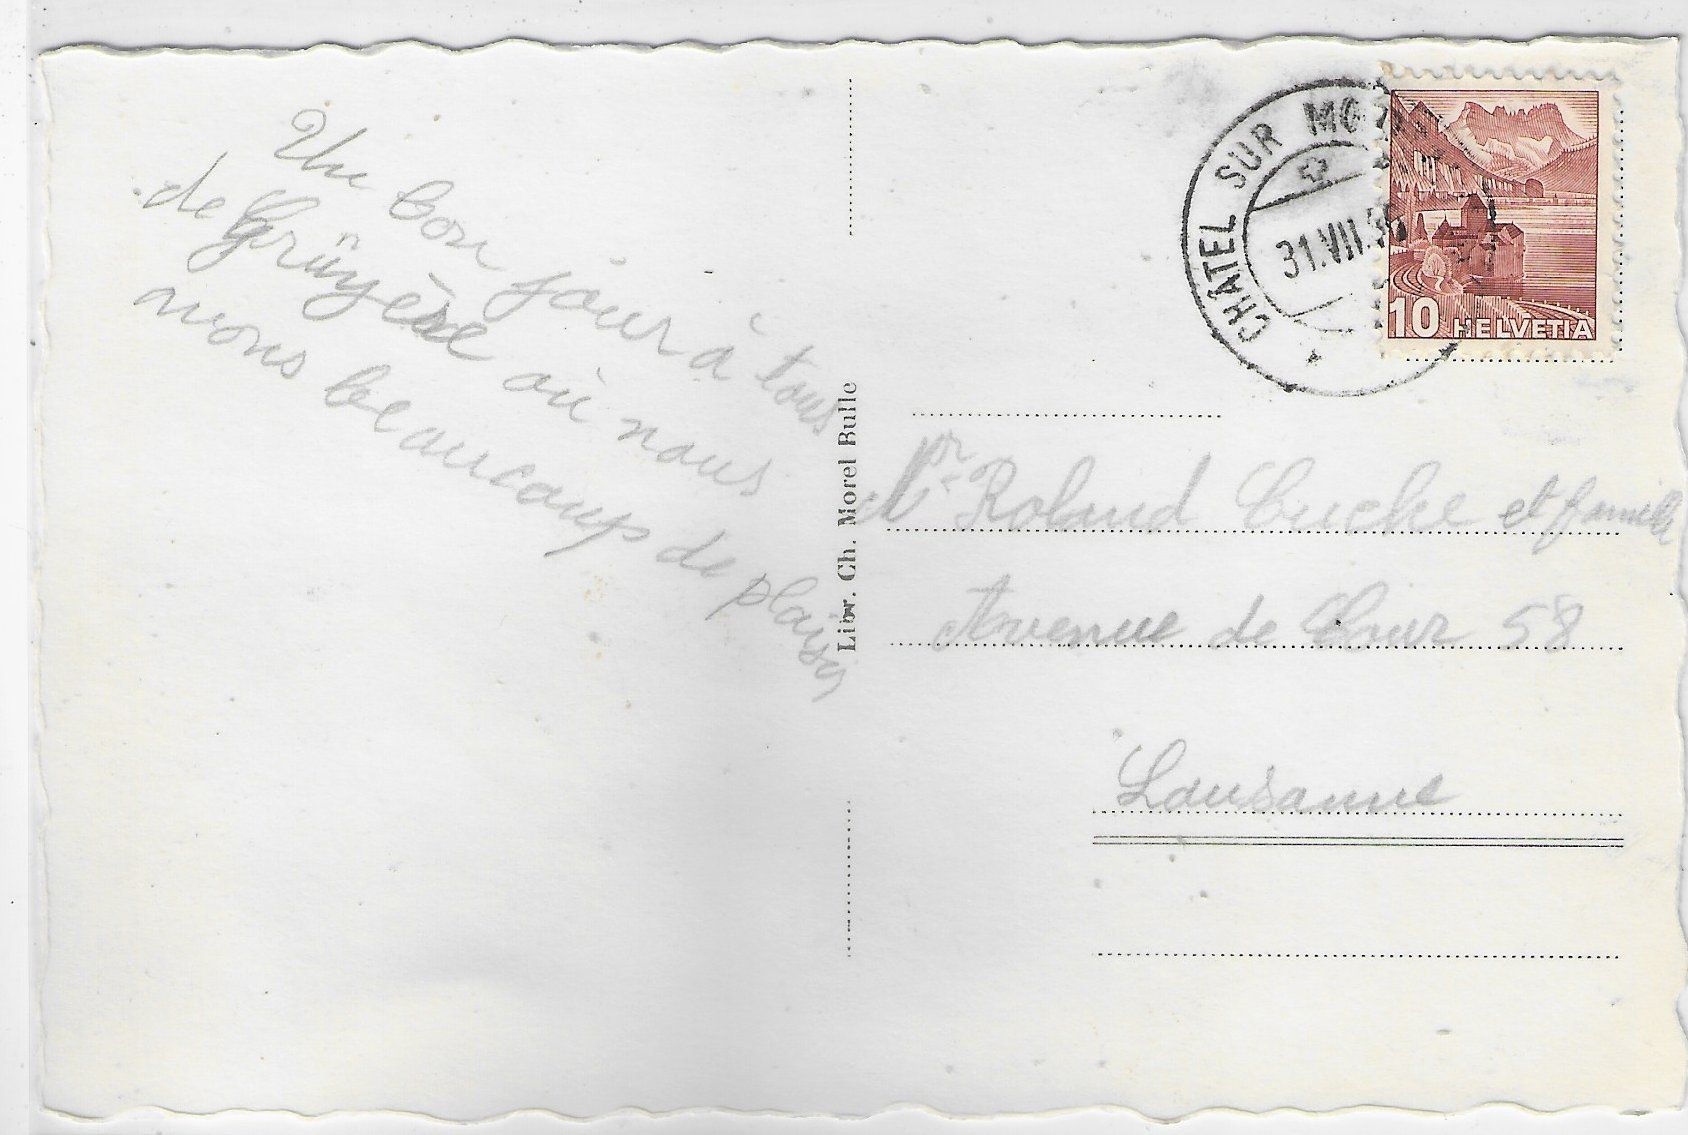 Un bon jour à tous
de Gruyère où nous
avons beaucoup de plaisir
Libr. Ch. Morel Bulle
CHÂTEL SUR MO
31.VII.3
10 HELVETIA
Mr Roland Cuche et famille
Avenue de Cour 58
Lausanne